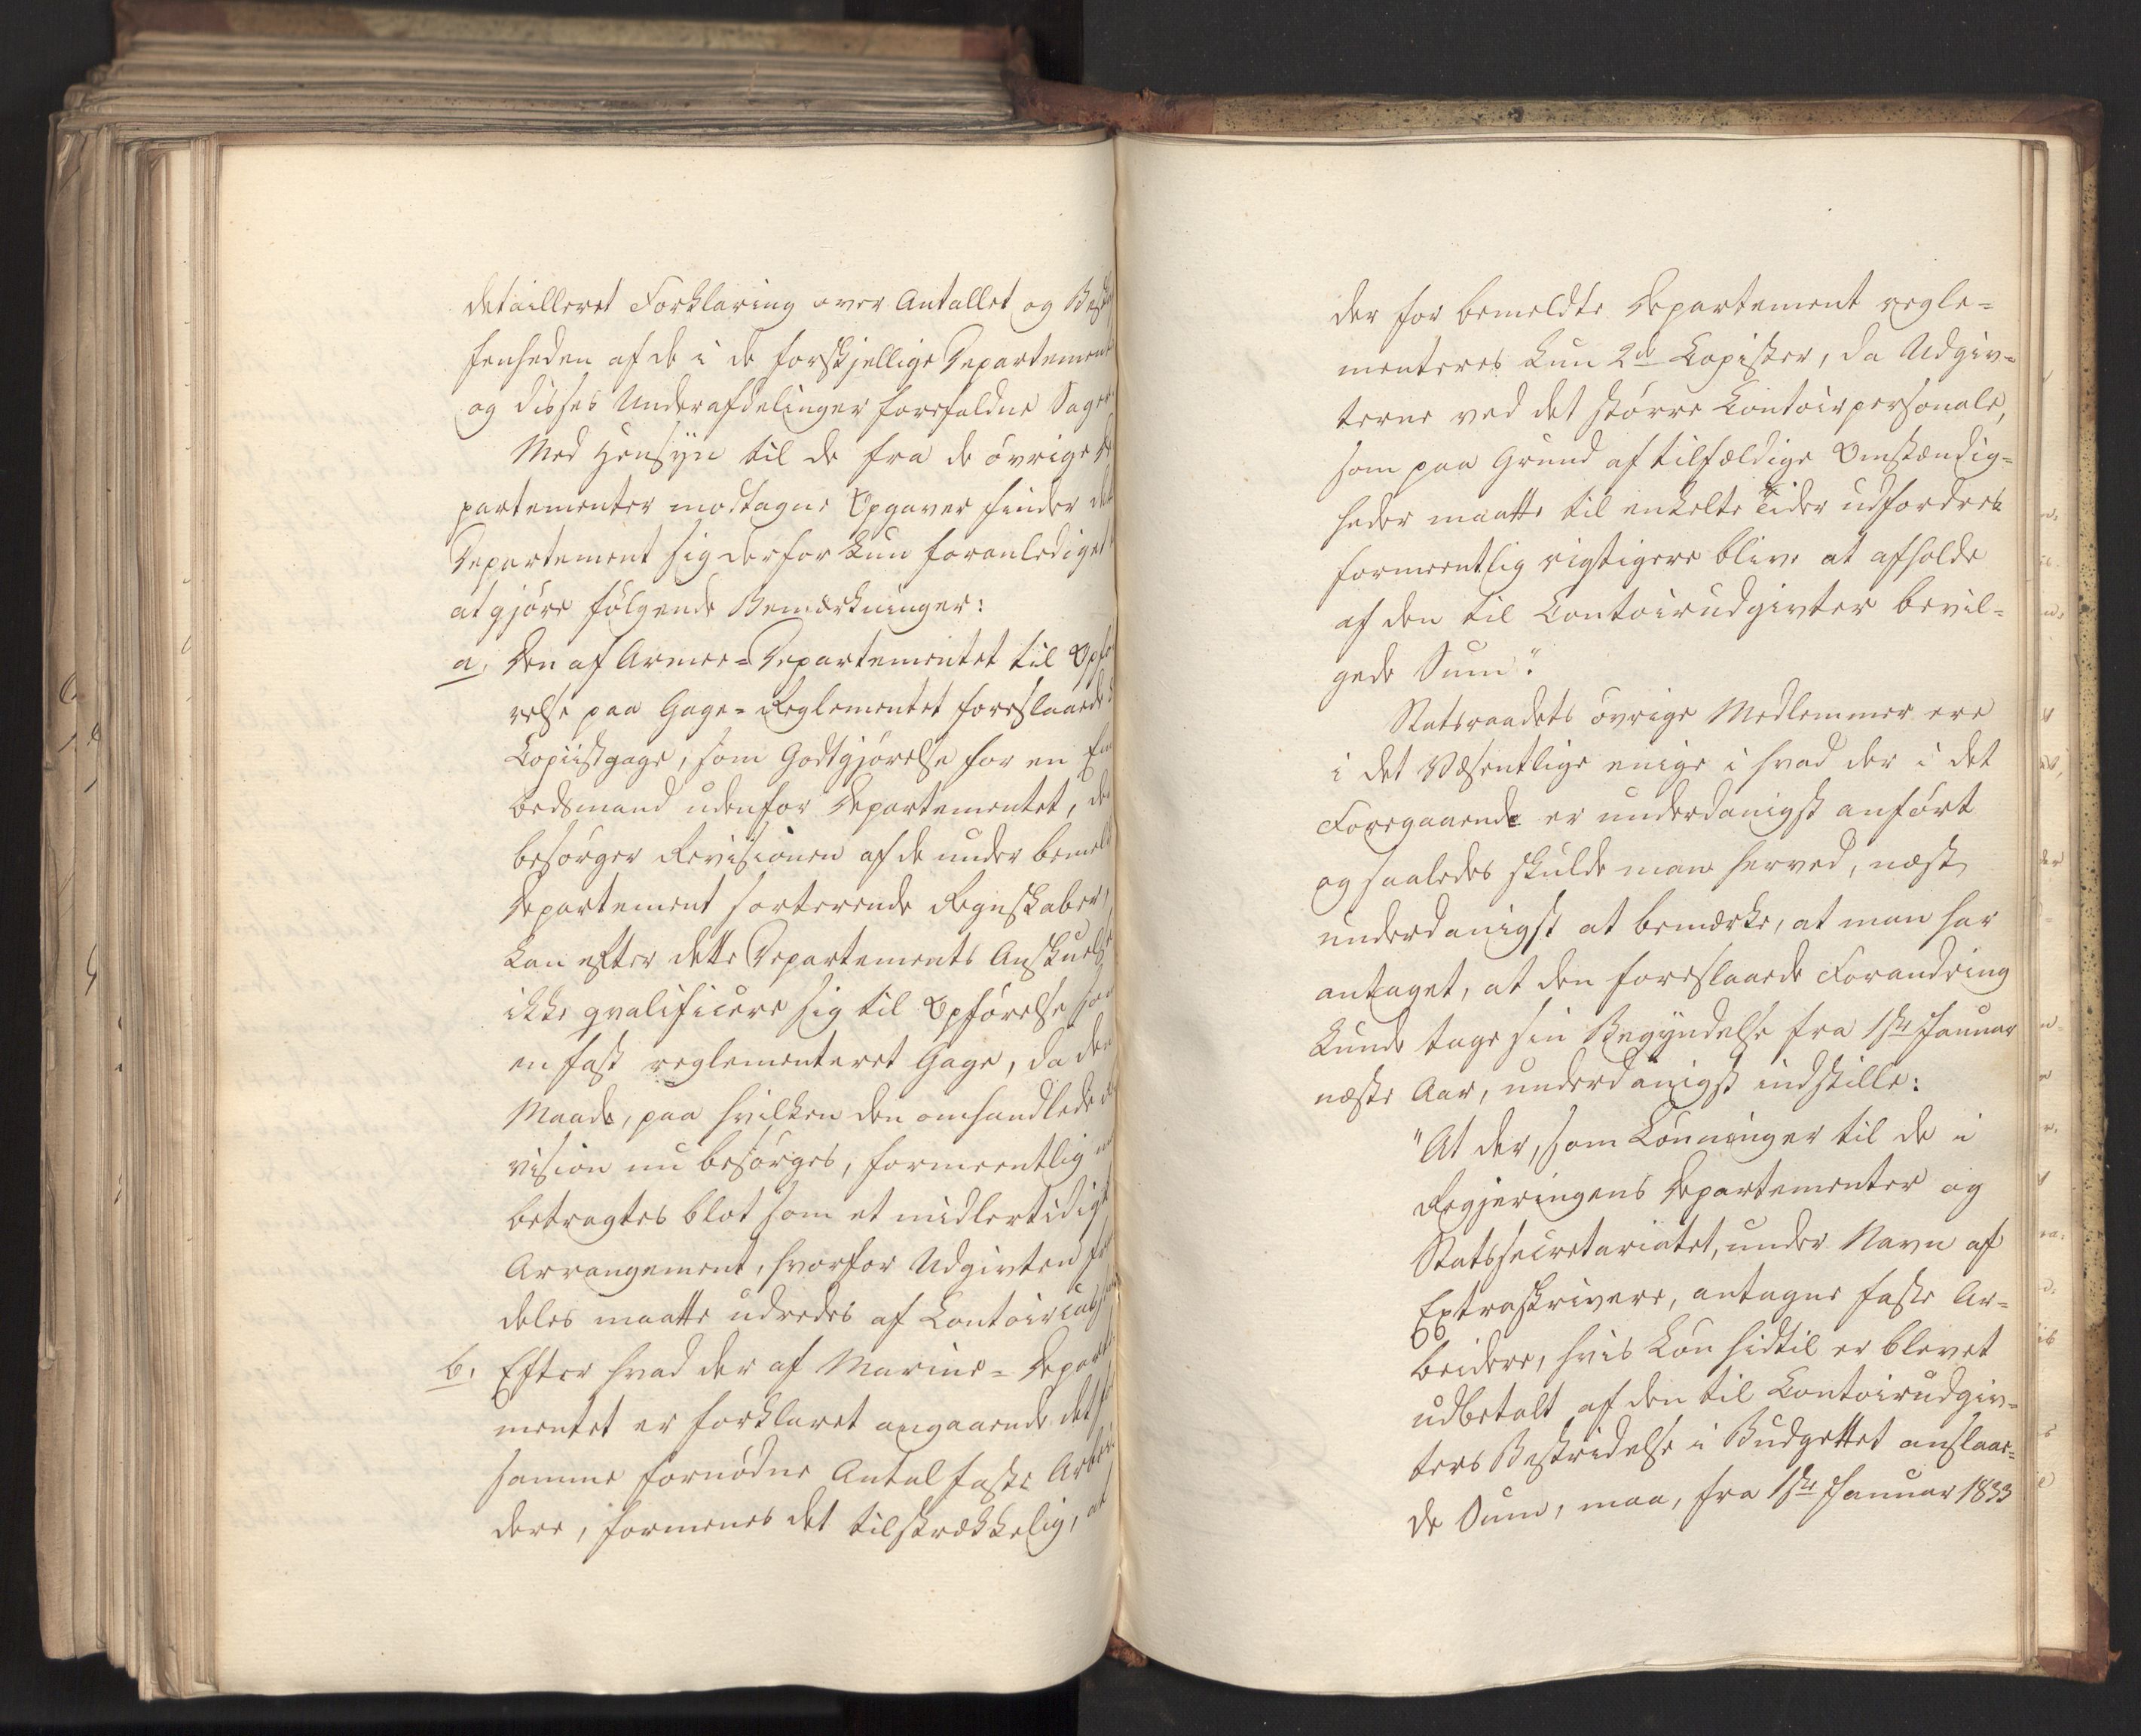 detailleret Forklaring over Antallet og Beskaf
fenheden af de i de forskjellige Departement
og disses Underafdelinger forefaldne Sager.
Med Hensyn til de fra de övrige De
partementer modtagne Opgaver finder det
Departement sig derfor kun foranlediget
at gjöre fölgende Bemærkninger:
a, Den af Armee=Departementet til Opfö
relse paa Gage=Reglementet foreslaaede
Copiistgage, som Godtgjörelse for en Em
bedsmand udenfor Departementet, der
besörger Revisionen af de under bemeld
Departement sorterende Regnskaber,
kan efter dette Departements Anskuelse
ikke qvalificere sig til Opförelse som
en fast reglementeret Gage, da den
Maade, paa hvilken den omhandlede Re
vision nu besörges, formeentlig
betragtes blot som et midlertidigt
Arrangement, hvorfor Udgivten frem
deles maatte udredes af Contoircassen
b, Efter hvad der af Marine=Departe
mentet er forklaret angaaende det for
samme fornödne Antal faste Arbei
dere, formenes det tilstrækkelig, at
der for bemeldte Departement regle=
menteres kun 2de Copister, da Udgiv=
terne ved det större Contoirpersonale,
som paa Grund af tilfældige Omstændig=
heder maatte til enkelte Tider udfordres
formeentlig rigtigere blive at afholde
af den til Contoirudgivter bevil=
gede Sum".
Statsraadets övrige Medlemmer ere
i det Væsentlige enige i hvad der i det
Foregaaende er underdanigst anfört
og saaledes skulde man herved, næst
underdanigst at bemærke, at man har
antaget, at den foreslaaede Forandring
kunde tage sin Begyndelse fra 1ste Januar
næste Aar, underdanigst indstille:
"At der, som Lönninger til de i
Regjeringens Departementer og
Statssecretariatet, under Navn af
Extraskrivere, antagne faste Ar=
beidere, hvis Lön hidtil er blevet
udbetalt af den til Contoirudgiv=
ters Bestridelse i Budgettet anslaae=
de Sum, maa, fra 1ste Januar 1833